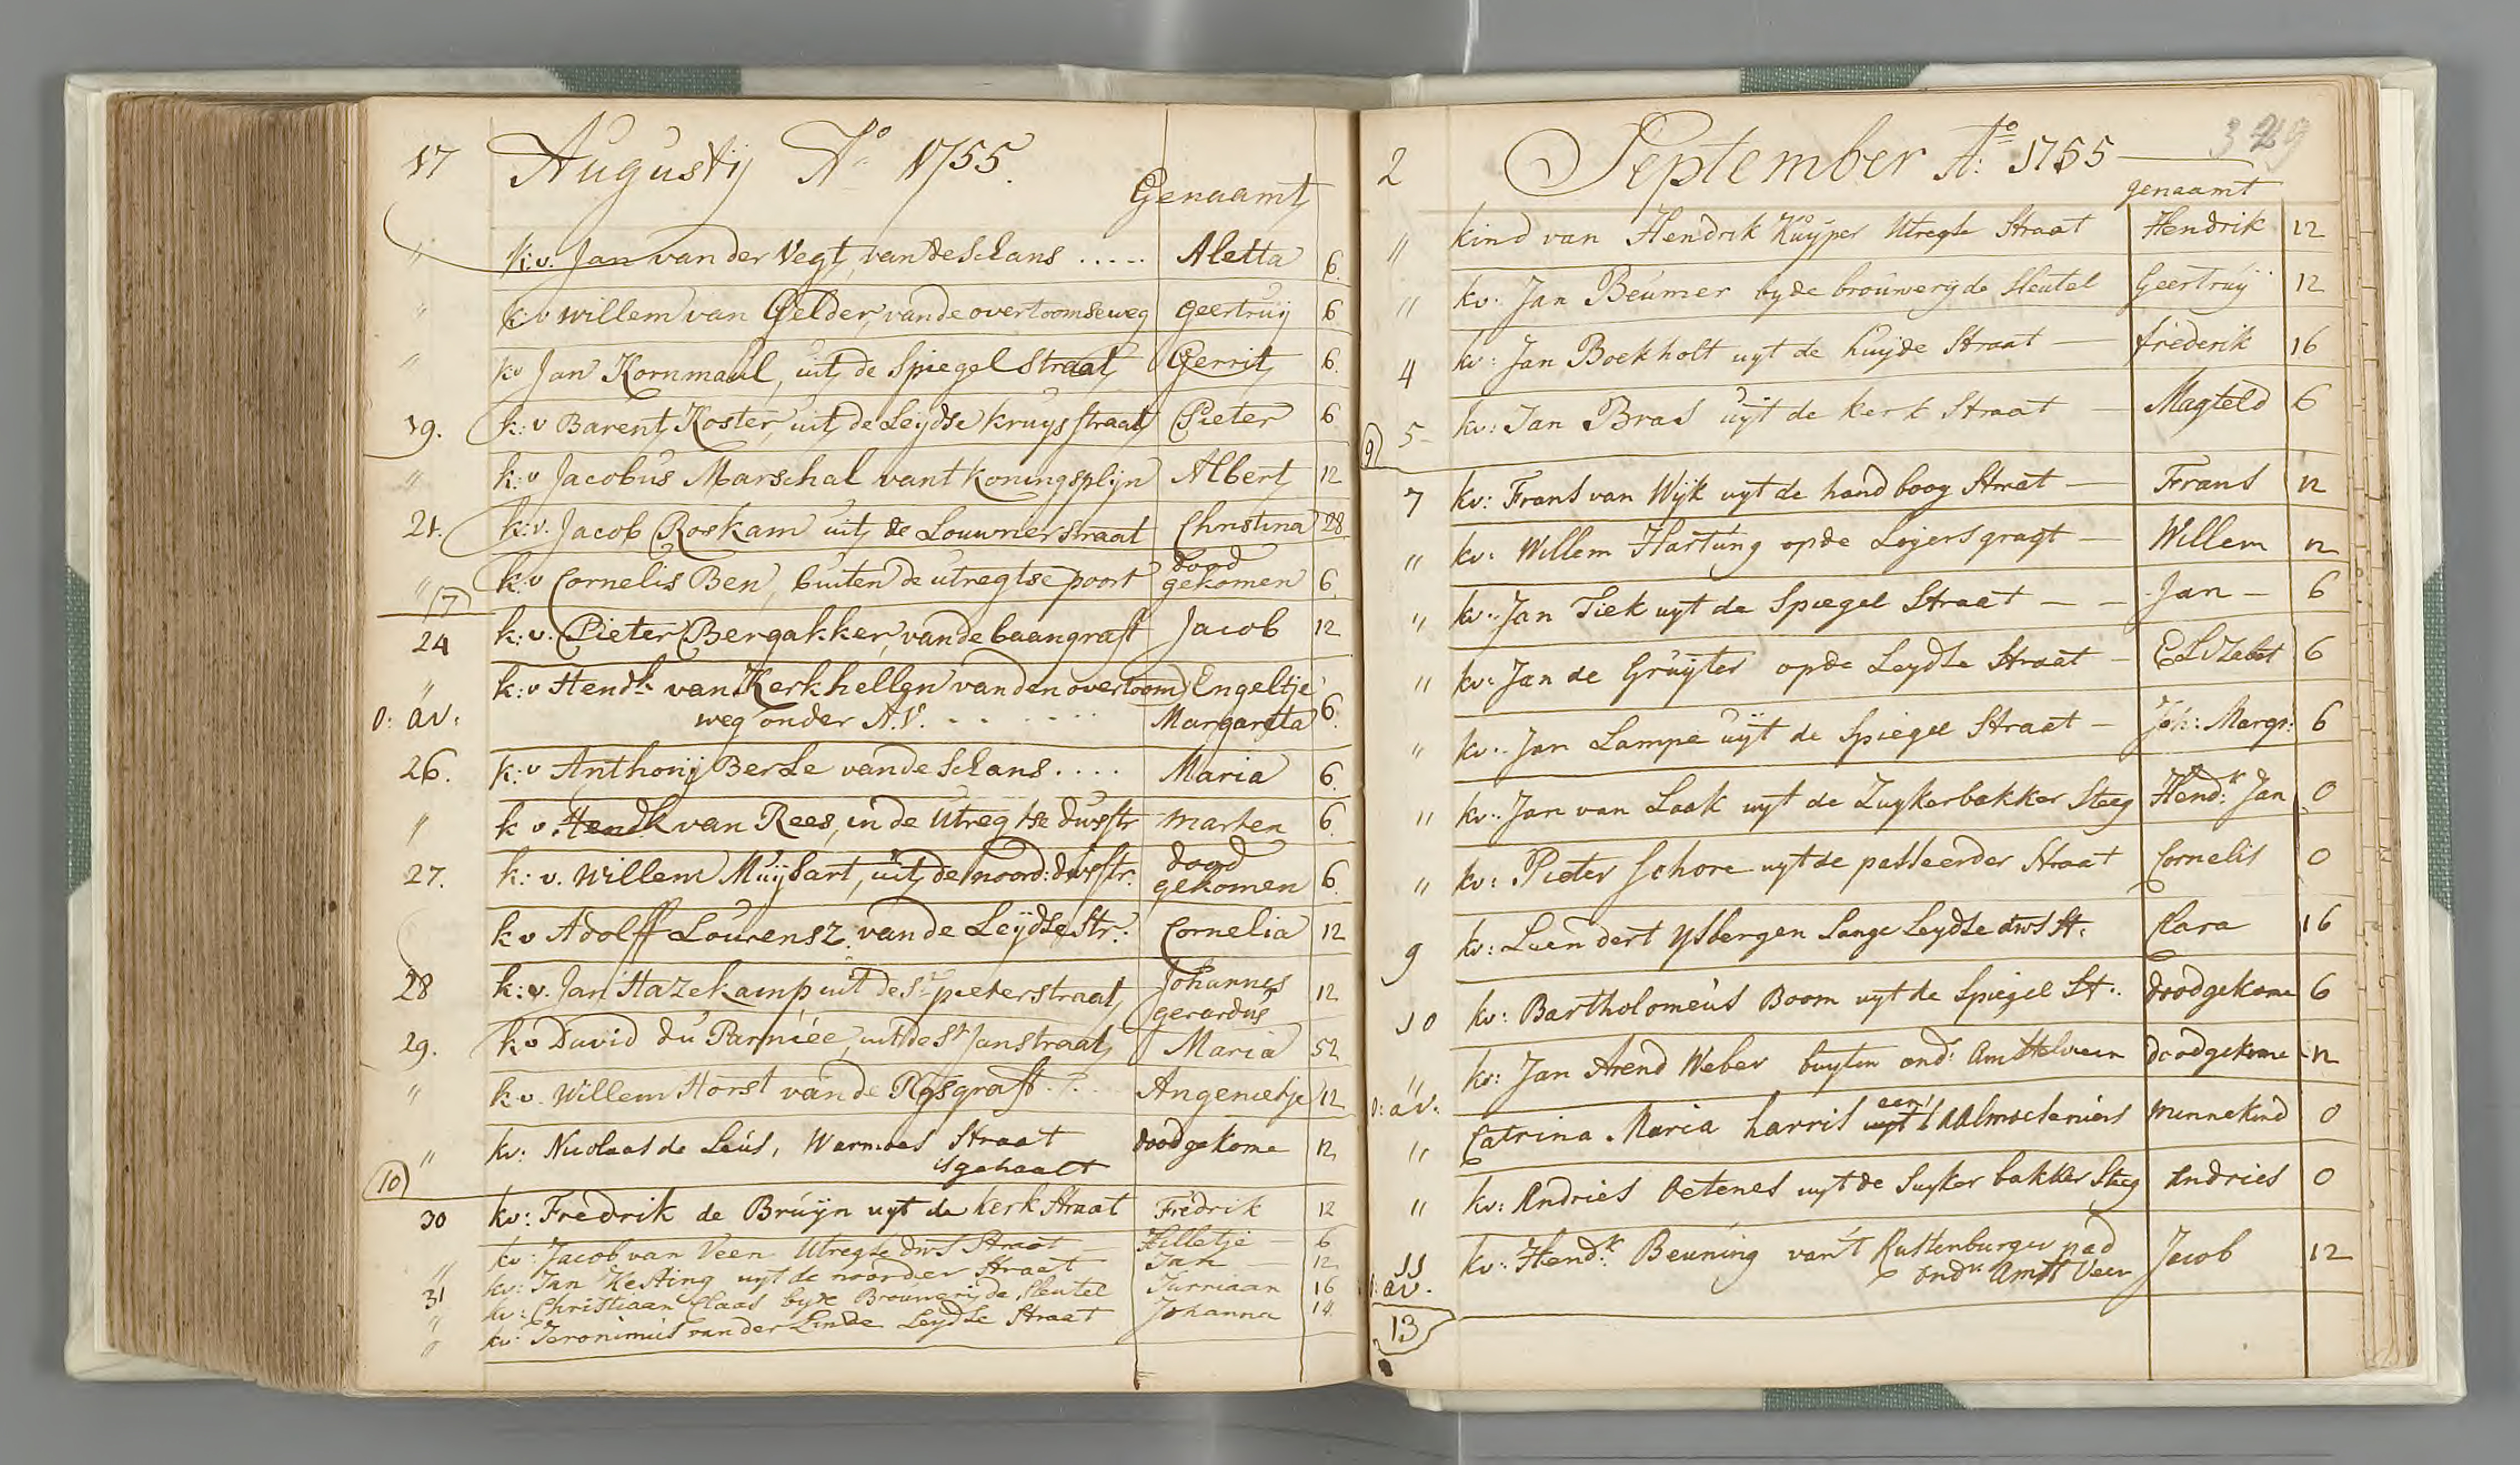 17 Augustij Aº 1755.
Genaamt
" k:v. Jan van der Vegt, van de Schans ..... Aletta 6.
" k:v willem van Gelder, vande overtoomseweg geertruij 6
" kv Jan Kornmaul, uit de Spiegel Straat Gerrit 6.
19. k:v Barent Koster, uit de Leijdse kruys straat Pieter 6
" k:v Jacobus Marschal vant koningsplijn Albert 12
21. k:v. Jacob Roskam uit de Louwrierstraat Christina 28
" k:v Cornelis Ben, buiten de utregtse poort dood gekomen 6
7
24 k:v. Pieter Bergakker, vande baangraft Jacob 12
" k:v Hendk van Kerkhellen van den overtoom Engeltje
O: av: weg onder A.V. . . . . . . Margareta 6.
26. k:v Anthonij Berle vande Schans .... Maria 6.
" k v. Hendk van Rees, in de Utregtse dwsstr marten 6
27. k: v. Willem Muijsart, uit de noord: dwsstr: dood gekomen 6.
k v Adolff Lourensz. van de Leijdse Str: Cornelia 12
28 k:v. Jan Hazekamp uit de St pieterstraat Johannes gerardus 12
29. k:v David du Parmiée, uit de St Janstraat Maria 52
" k v. Willem Horst van de Rysgraft Angenietje 12
" kv: Nicolaas de Leús, Warmoes Straat doodgekome 12
isgehaalt
10
30 kv: Fredrik de Brúijn uyt de kerk Straat Frédrik 12
" kv: Jacob van Veen Utregse dwS Straat Hilletje 6
31 kv: Jan Kesting uyt de noorder Straat Jan 12
" kv: Christiaan Claas byde Brouwerij de Sleutel Jurriaan 16
" kv: Jeronimús van der Linde Leydse Straat Johanna 14
2 September Aº: 1755 329
genaamt
" kind van Hendrik Kúijper Utregse Straat Hendrik 12
" kv: Jan Beúmer byde broúwerijde Sleutel Geertrúij 12
4 kv: Jan Boekholt uyt de huijde Straat frederik 16
5 kv: Jan Bras uijt de kerk Straat Magteld 6
9
7 kv: Frans van Wijk uyt de handboog Straat Frans 12
" kv: Willem Hartúng opde Leijersgragt Willem 12
" kv: Jan Tiek uyt de Spiegel Straat Jan 6
" kv: Jan de Grúijter opde Leydse Straat Elizabet 6
" kv: Jan Lampe uijt de Spiegel Straat Joh: Margr: 6
" kv: Jan van Laak uyt de Zuykerbakker Steeg Hend:k Jan 0
" kv: Pieter Schore uyt de passeerder Straat Cornelis 0
9 kv: Leendert Ysbergen Lange Leydse dws St: Clara 16
10 kv: Bartholomeús Boom uyt de Spiegel St: doodgekome 6
" kv: Jan Arend Weber buyten ond: Amstelveen doodgekome 12
O: av:
" Catrina Maria harris uyt een 's Aalmoeseniers minnekind 0
" kv: Andries Oetenes uyt de Suyker bakker Steeg Andries 0
11 kv: Hend:k Beuning van't Rustenburger pad Jacob 12
O: av. ondr Amst Veen
13